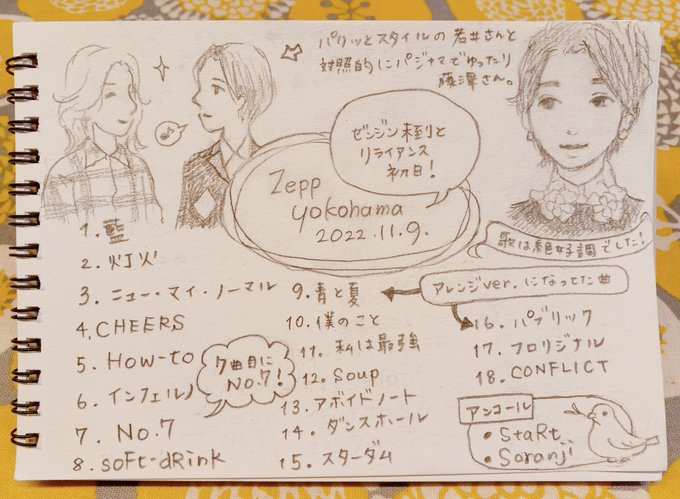 パリッとスタイルの若井さんと
対照的にパジャマでゆったり
藤澤さん。
ゼンジン未到と
リライアンス
初日!
Zepp
yokohama
2022.11.9.
歌は絶好調でした!
1. 藍
2. 灯火
3. ニュー・マイ・ノーマル
4. CHEERS
5. How-to
6. インフェルノ
7. No.7
8. soft-dRink
7曲目に
No.7!
9. 青と夏
10. 僕のこと
11. 私は最強
12. Soup
13. アボイドノート
14. ダンスホール
15. スターダム
アレンジver.になってた曲
16. パブリック
17. フロリジナル
18. CONFLICT
アンコール
• StaRt
• Soranji